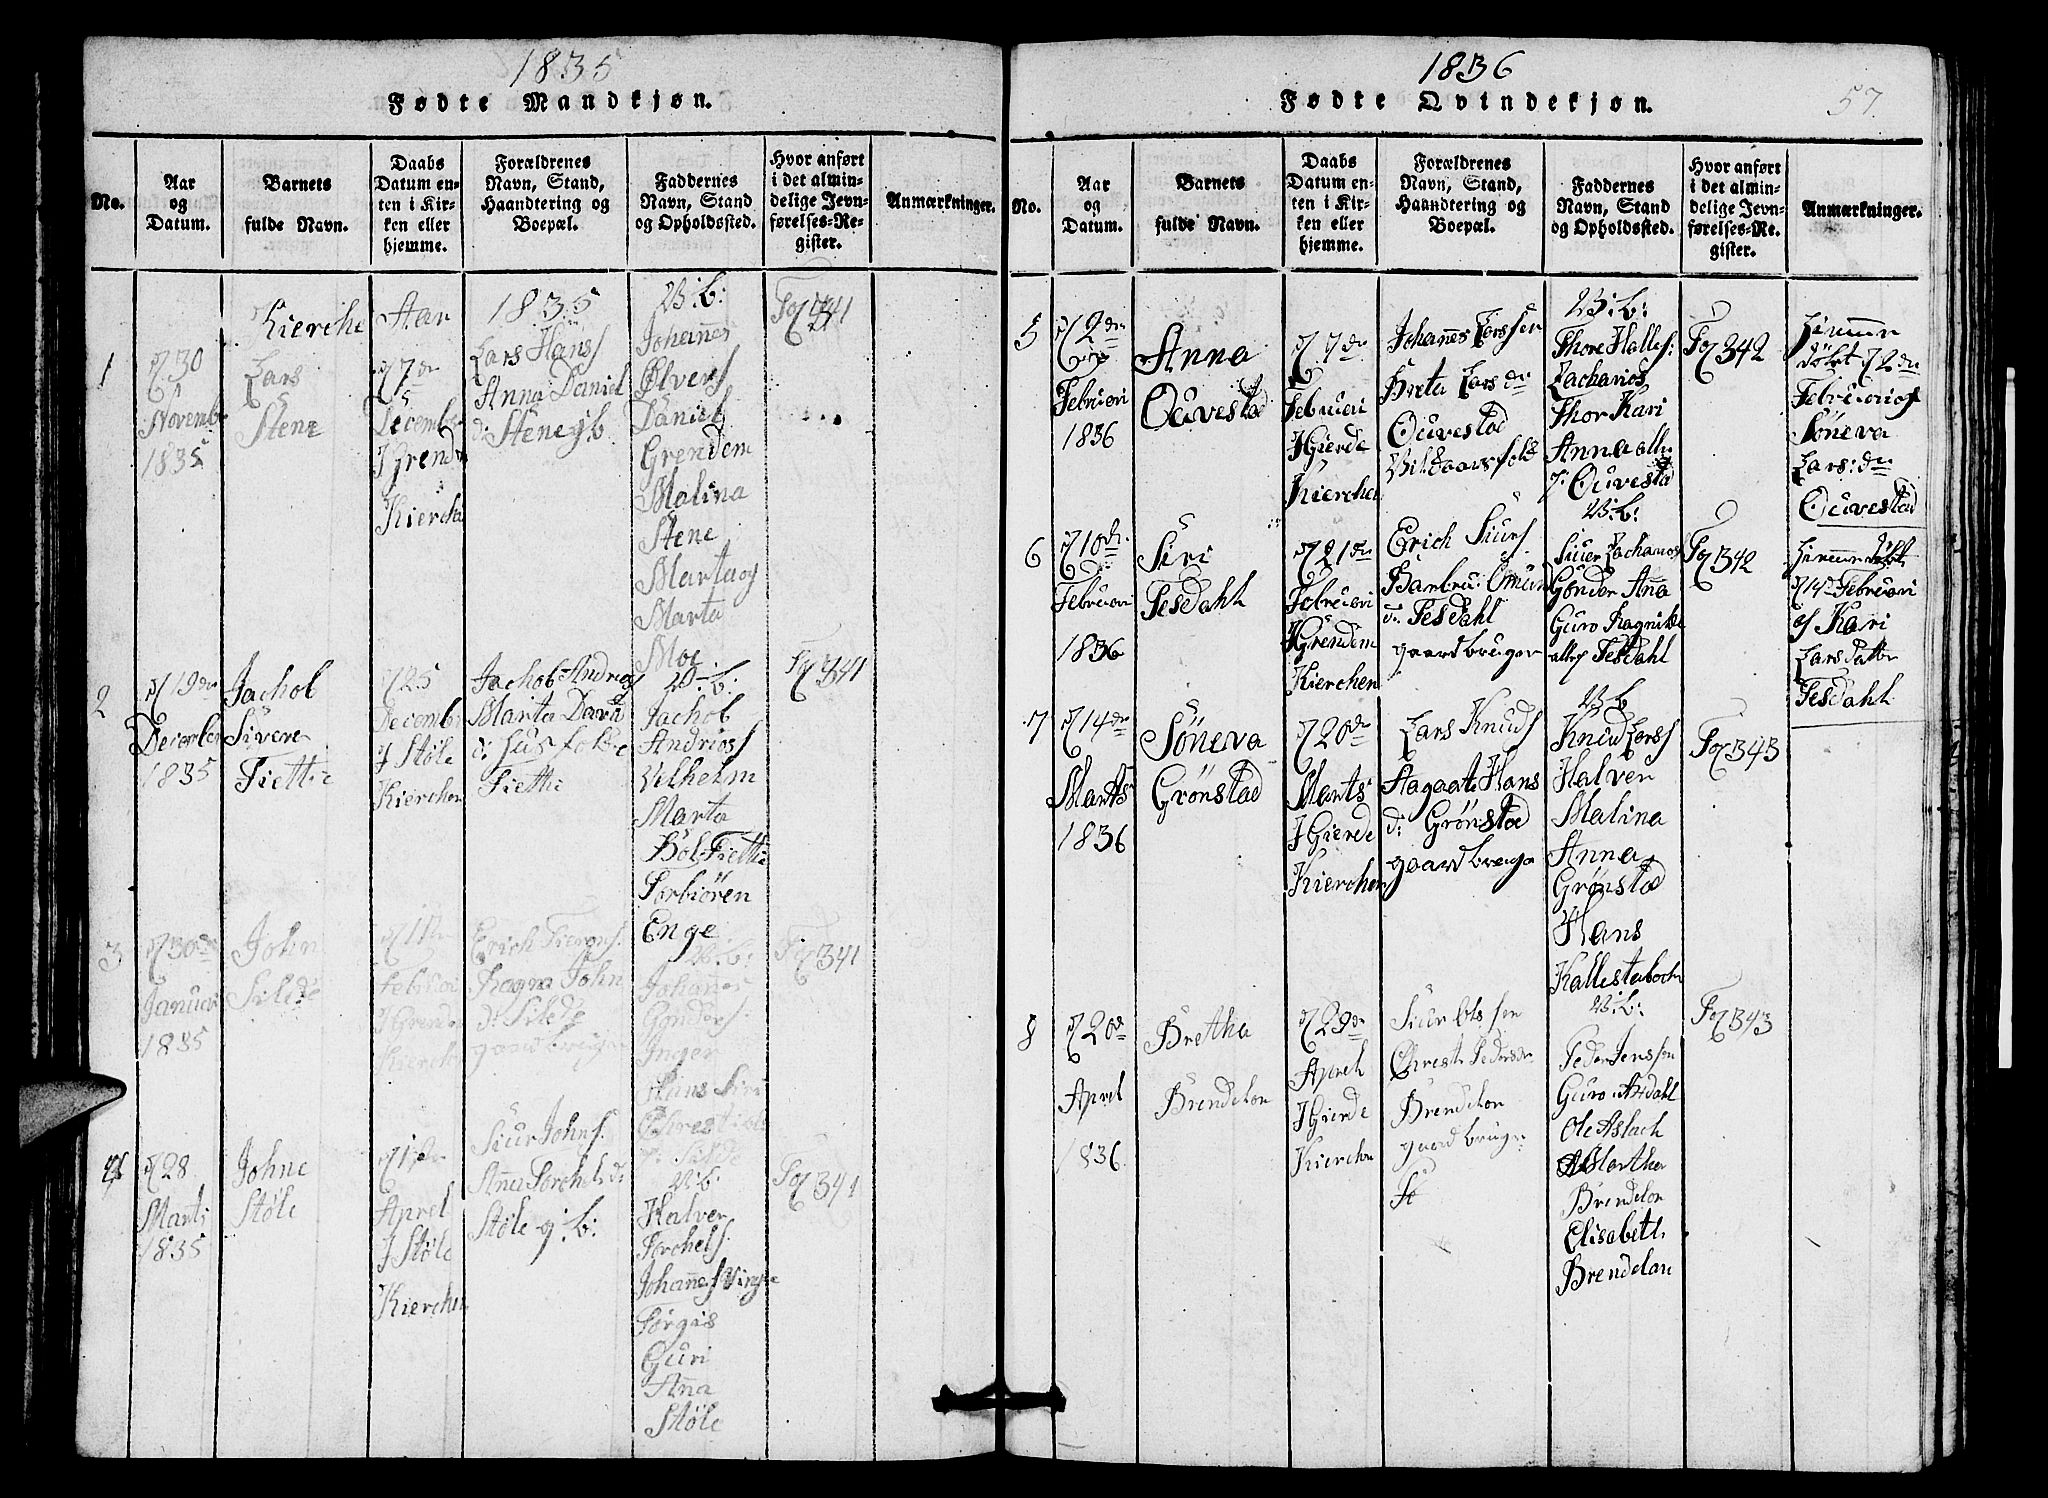 1835
Fødte Mandkjøn.
No.
Aar
og
Datum.
Barnets
fulde Navn.
Daabs
Datum en-
ten i Kir-
ken eller
hjemme.
Forældrenes
Navn, Stand,
Haandtering og
Boepæl.
Faddernes
Navn, Stand
og Opholdssted.
Hvor anført
i det almin-
delige Jevn-
førelses-Re-
gister.
Anmærkninger.
Kierche Aar 1835
1
30
Novembr
1835
Lars
Stene
7de
December
J Grend
Kierche
Lars Hans
Anna Daniel
d: Stene g b
V: b:
Johannes
Ølvers
Daniel
Grendem
Malina
Stene
Marta og
Marta
Moe
Fo 341
2
19de
December
1835
Jachob
Sivere
Tiettie
25
Decembr
J Støle
Kierchen
Jachob Andreas
Marta Davi
d: Husfolk
Tiettie
V: b:
Jachob
Andrias
Vilhelm
Marta
Bol Tiettie
Torbiören
Enge
Fo 341
3
30de
Januari
1835
John
Silde
11te
Februari
J Grenden
Kierchen
Erich
Ragna John
d: Silde
gaardbruger
V: b:
Johannes
Gonders
Inger
Hans Siri
Silde
Fo 341
4
28
Marts
1835
Johne
Støle
17de
Aprel
J Støle
Kierchen
Siur Johns.
Anna Torchels d:
Støle g: b:
V: b:
Halver
Torchels.
Johannes Vinje
Torgis
Guri
Anna
Støle
Fo 341
1836
Fødte Qvindekjøn.
57.
No.
Aar
og
Datum.
Barnets
fulde Navn.
Daabs
Datum en-
ten i Kir-
ken eller
hjemme.
Forældrenes
Navn, Stand,
Haandtering og
Boepæl.
Faddernes
Navn, Stand
og Opholdssted.
Hvor anført
i det almin-
delige Jevn-
førelses-Re-
gister.
Anmærkninger.
5
2de
Februari
1836
Anna
Ouvestad
7de
Februari
J Gierde
Kierchen
Johannes Larssen
Breta Lars dr
Ouvestad
V: b:
Thore Halles:
Zacharias
Thor Kari
Anna alle
J: Ouvestad
Fo 342
Himmer
döbt 2de
Februari of
Söneva
Lars: dr
Ouvestad
6
10de
Februari
1836
Siri
Tesdahl
21de
Februari
J Grendem
Kierchen
Erich Siurs.
Barbru Omun
d: Tesdahl
gaardbruger
V: b:
Siuer Zacharias
Gonder Anna
Guro Ragnilde
alle J Tesdahl
Fo 342
Himmer döbt
14de Februari
of Kari
Larsdatter
Tesdahl
7
14de
Marts
1836
Söneva
Grönstad
20de
Marts
J Gierde
Kierchen
Lars Knuds
Aagaate Hans
d: Grönstad
gaardbruger
V: b
Knud Lars
Halver
Malina
Anna
Grönstad
Hans
Kallestaboch
Fo 343
8
20de
Aprel
1836
Bretha
Brendelon
29de
Aprel
J Gierde
Kierchen
Siur Olssen
Chreste Pedersdr
Brendelon
gaardbruger
V: b:
Peder Jenssen
Guro Aasdahl
Ole Aslach
Martha
Brendelon
Elisabeth
Brendelon
Fo 343